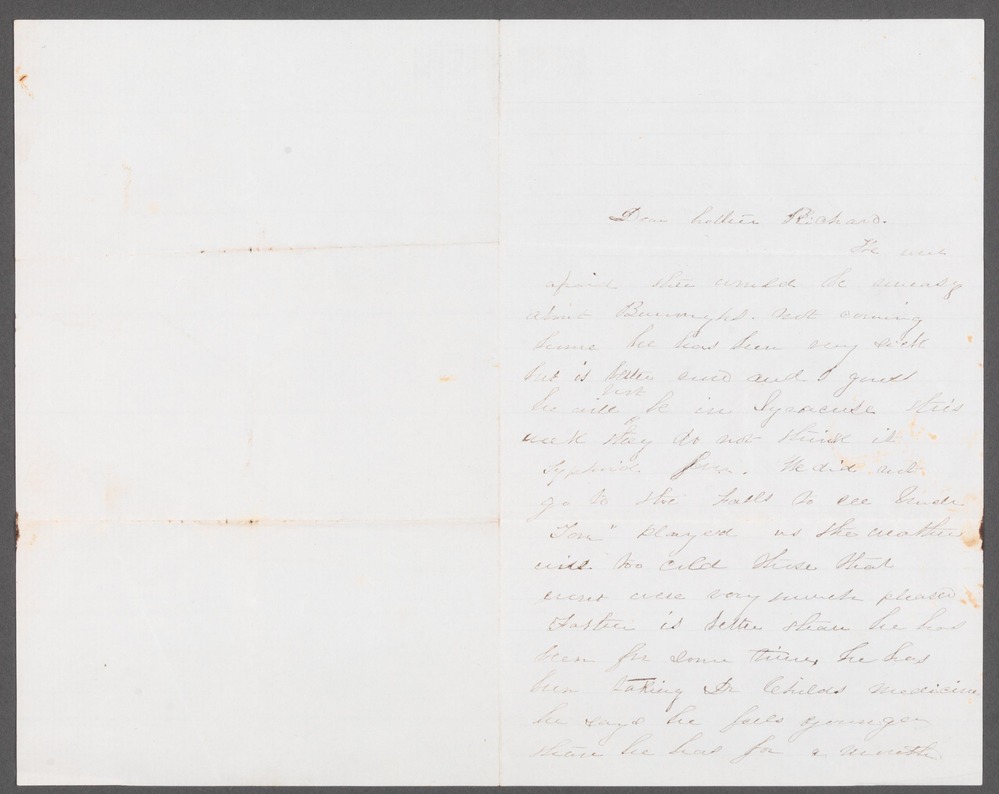 Dear brother Richard.
We were
afraid they would be uneasy
about Burroughs. not coming
home he has been very sick
but is better now and I guess
he will not be in Syracuse this
week they do not think it
Typhoid fever. We did not
go to the Falls to see Uncle
Tom" played as the weather
was too cold those that
went were very much pleased
Father is better than he has
been for some time, he has
been taking Dr Childs medicine
he says he feels younger
than he has for a month